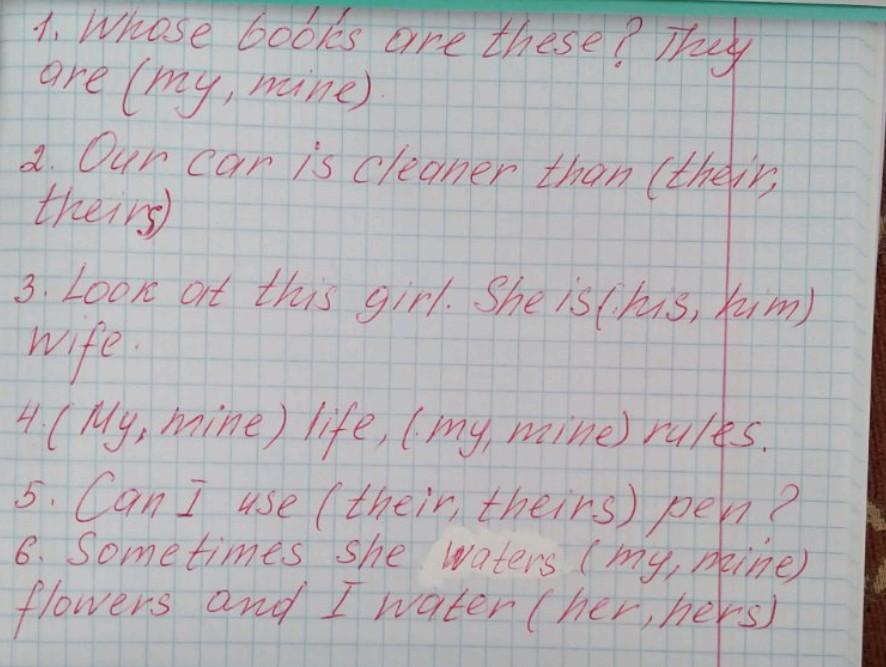 1. Whose books are these? They
are (my, mine).
2. Our car is cleaner than (their,
theirs)
3. Look at this girl. She is (his, him)
wife.
4. (My, mine) life, (my, mine) rules.
5. Can I use (their, theirs) pen?
6. Sometimes she waters (my, mine)
flowers and I water (her, hers)